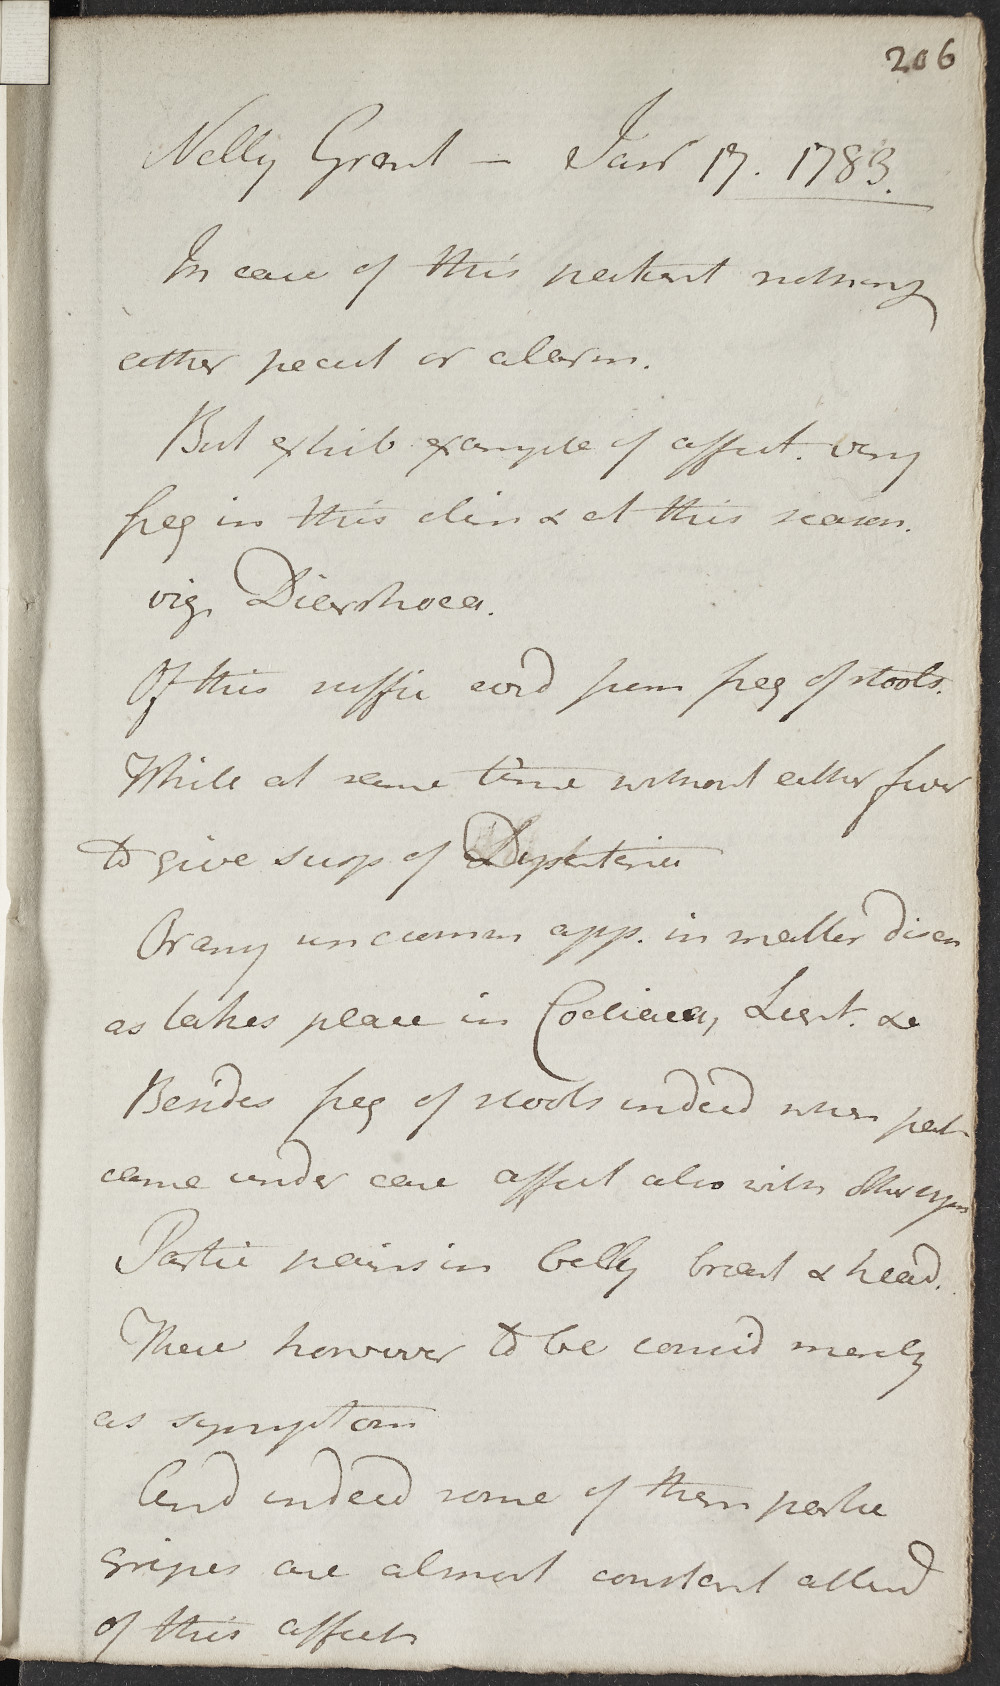 206
Nelly Grant – Janr 17. 1783.
In case of this patient nothing
either pecul or alarm.
But exhib example of affect. very
freq in this clim & at this season.
viz. Diarrhoea.
Of this suffic evid from freq of stools.
While at same time without either fever
to give susp of Dysenteria
Or any uncomm app. in matter disch
as takes place in Coeliaca, Lient. &c
Besides freq of stools indeed when pat
came under care affect also with other sym
Partic pains in belly breast & head.
These however to be consid merely
as symptom
And indeed some of them partic
gripes are almost constant attend
of this affect